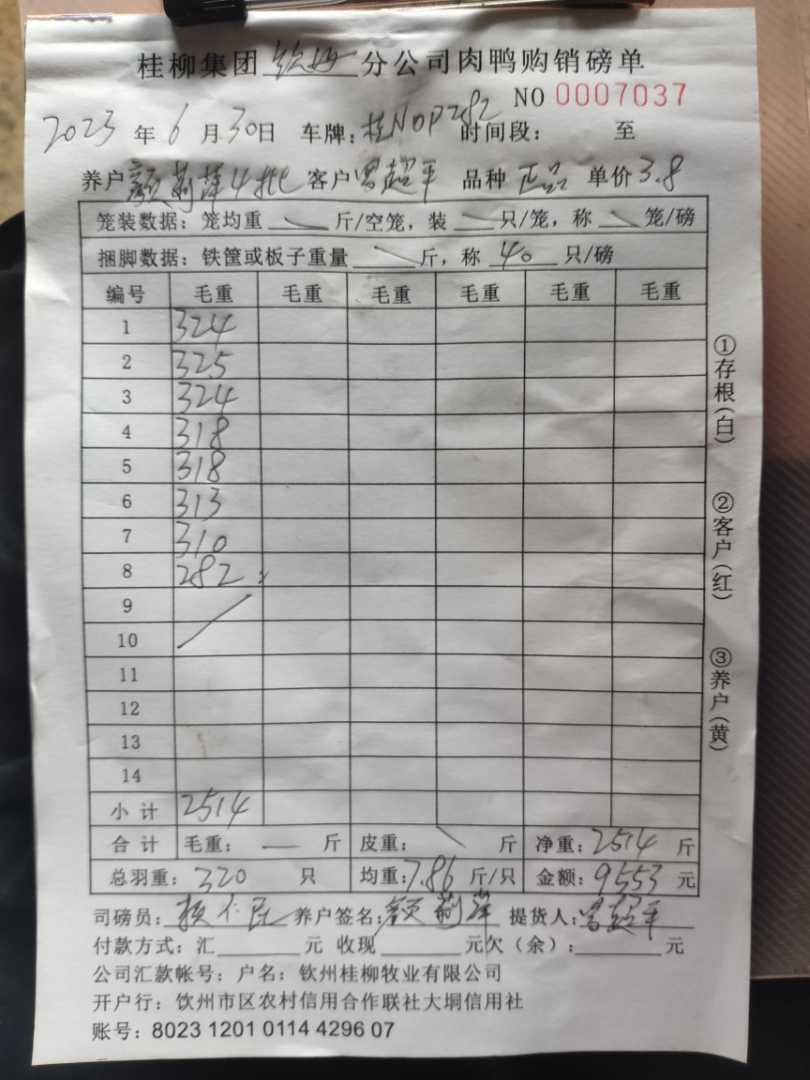 桂柳集团 钦州 分公司肉鸭购销磅单
NO 0007037
2023 年 6 月 30 日 车牌：桂N0P282 时间段： 至
养户 颜莉萍4批 客户 曾超平 品种 正品 单价 3.8
笼装数据：笼均重 斤/空笼，装 只/笼，称 笼/磅
捆脚数据：铁筐或板子重量 斤，称 40 只/磅
编号 毛重 毛重 毛重 毛重 毛重 毛重
1 324
2 325
3 324
4 318
5 318
6 313
7 310
8 282
9
10
11
12
13
14
小计 2514
合计 毛重： — 斤 皮重： 斤 净重：2514 斤
总羽重：320 只 均重：7.86 斤/只 金额：9553 元
司磅员： 养户签名：颜莉萍 提货人：曾超平
付款方式：汇 元 收现 元欠（余）： 元
公司汇款帐号：户名：钦州桂柳牧业有限公司
开户行：钦州市区农村信用合作联社大垌信用社
账号：8023 1201 0114 4296 07
①存根（白）
②客户（红）
③养户（黄）